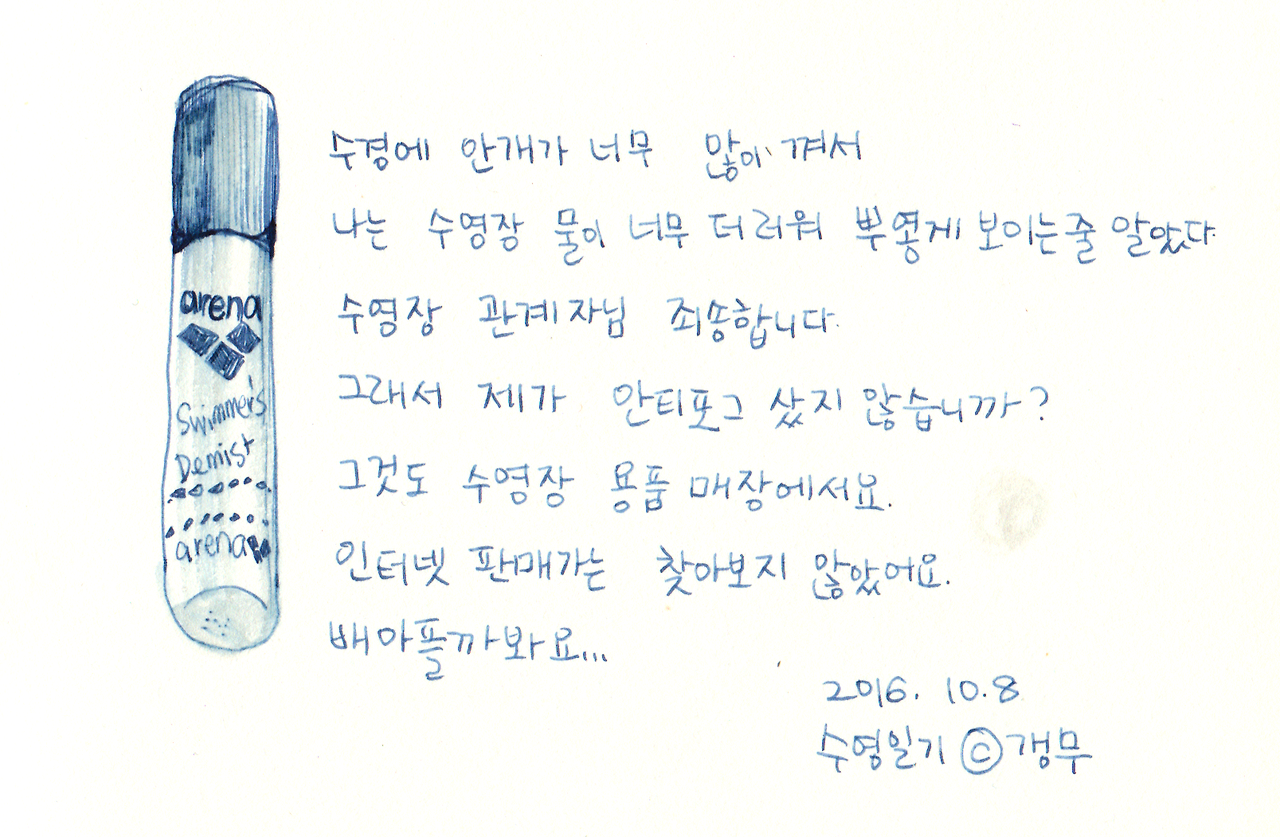 arena
Swimmer's
Demist
arena
수경에 안개가 너무 많이 껴서
나는 수영장 물이 너무 더러워 뿌옇게 보이는줄 알았다
수영장 관계자님 죄송합니다.
그래서 제가 안티포그 샀지 않습니까?
그것도 수영장 용품 매장에서요.
인터넷 판매가는 찾아보지 않았어요.
배아플까봐요...
2016. 10.8
수영일기 © 갱무